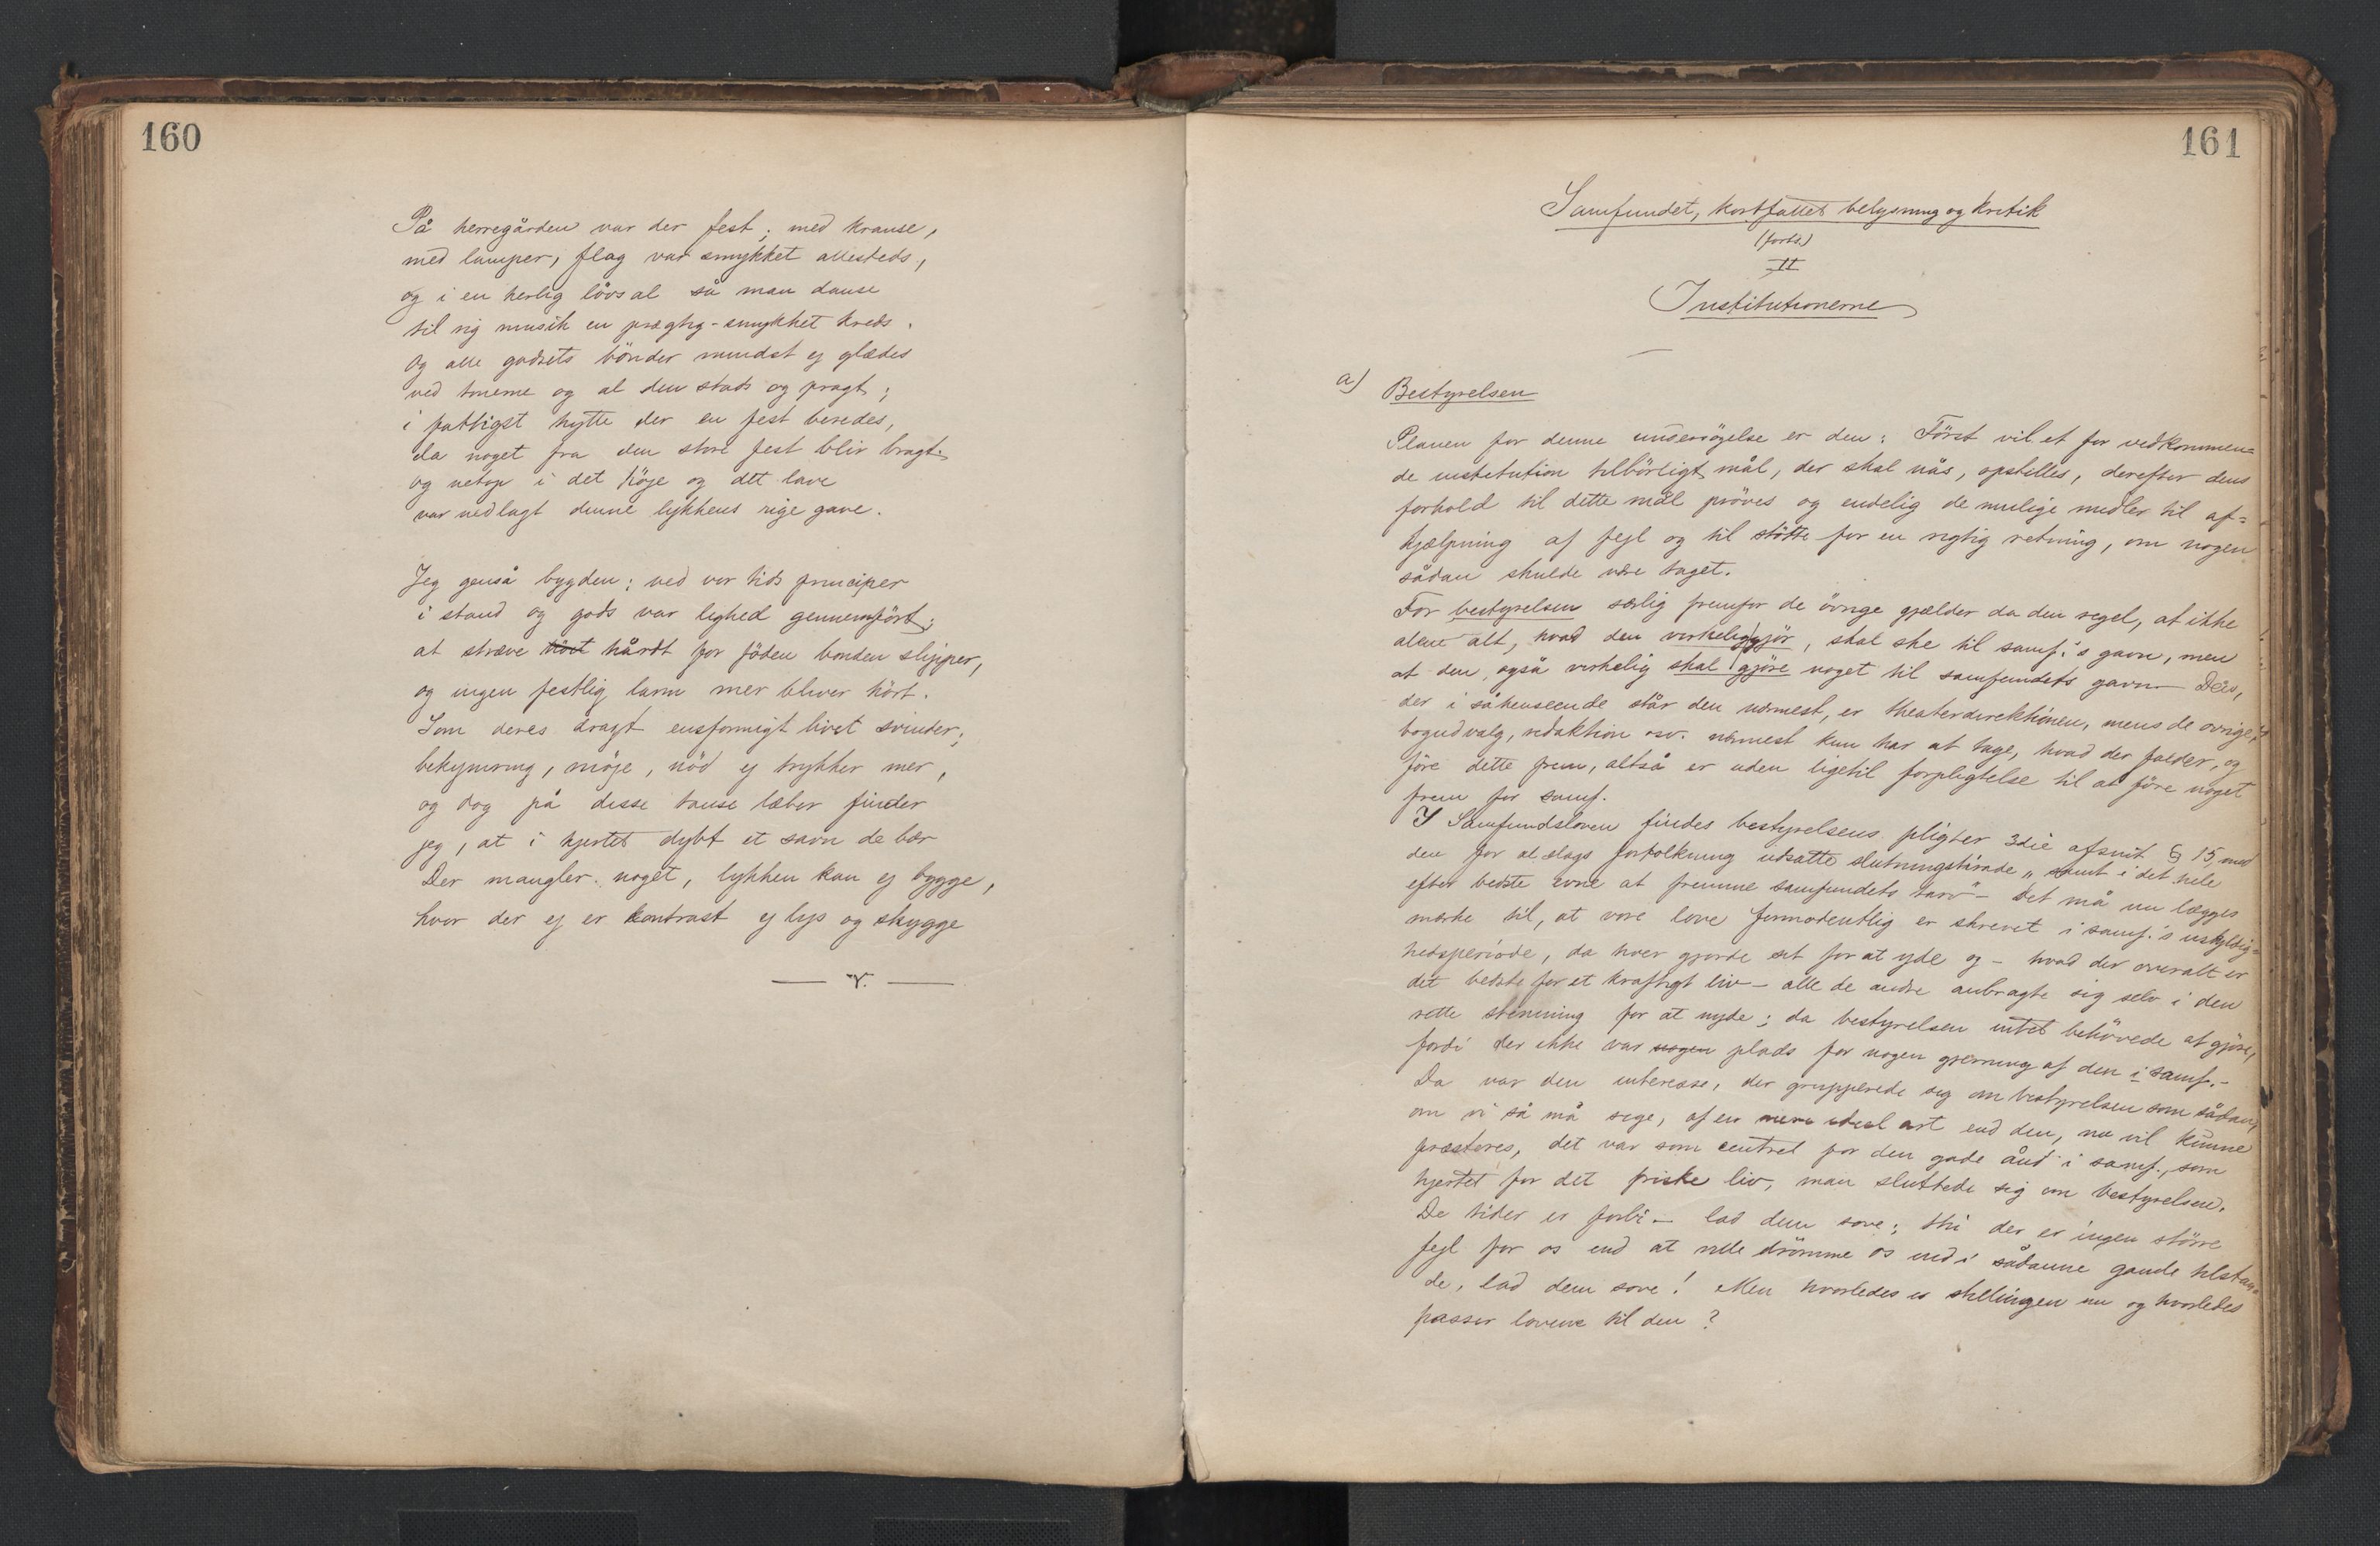 160
På herregården var der fest; med krause,
med lamper, flag var smykket allesteds,
og i en herlig lövsal så man danse
til rig musik en prægtig-smykket kreds.
Og alle godsets bönder mindst ej glædes
ved tonerne og al den stads og pragt;
i fattigst hytte der en fest beredes,
da noget fra den store fest blir bragt.
og netop i det höje og det lave
var nedlagt denne lykkens rige gave.
Jeg genså bygden; ved vor tids principer
i stand og gods var lighed gennemfört;
at stræve hårdt for föden bonden slipper,
og ingen festlig larm mer bliver hört.
Som deres dragt ensformigt livet svinder;
bekymring, möje, nöd ej trykker mer,
og dog på disse tause læber finder
jeg, at i hjertet dybt et savn de bær
Der mangler noget, lykken kan ej bygge,
hvor der ej er kontrast ej lys og skygge
— r. —
161
Samfundet, kortfattet belysning og kritik
(forts.)
II
Institutionerne
a) Bestyrelsen
Planen for denne undersögelse er den: Först vil et for vedkommen=
de institution tilbörligt mål, der skal nås, opstilles, derefter dens
forhold til dette mål pröves og endelig de mulige midler til af=
hjælpning af fejl og til stötte for en rigtig retning, om nogen
sådan skulde være taget.
For bestyrelsen særlig fremfor de övrige gjælder da den regel, at ikke
alene alt, hvad den virkelig gjör, skal ske til samf.'s gavn, men
at den også virkelig skal gjöre noget til samfundets gavn — Den,
der i såhenseende står den nærmest, er theaterdirektionen, mens de övrige,
bogudvalg, redaktion osv. nærmest kun har at tage, hvad der falder, og
före dette frem, altså er uden ligetil forpligtelse til at före noget
frem for samf.
I Samfundsloven findes bestyrelsens pligter 3die afsnit § 15 med
den for al slags fortolkning udsatte slutningstirade „samt i det hele
efter bedste evne at fremme samfundets tarv" — Det må nu lægges
mærke til, at vore love formodentlig er skrevet i samf.'s uskyldig=
hedsperiode, da hver gjorde sit for at yde og — hvad der overalt er
det bedste for et kraftigt liv — alle de andre anbragte sig selv i den
rette stemning for at nyde; da bestyrelsen intet behövede at gjöre,
fordi der ikke var nogen plads for nogen gjerning af den i samf. —
Da var den interesse, der grupperede sig om bestyrelsen som sådan,
om vi så må sige, af en mere ideel art end den, nu vil kunne
præsteres, det var som centrel for den gode ånd i samf., som
hjertet for det friske liv, man sluttede sig om bestyrelsen.
De tider er forbi — lad dem sove; thi der er ingen större
fejl for os end at ville drömme os ind i sådanne gamle tilstan=
de, lad dem sove! Men hvorledes er stillingen nu og hvorledes
passer lovene til den?